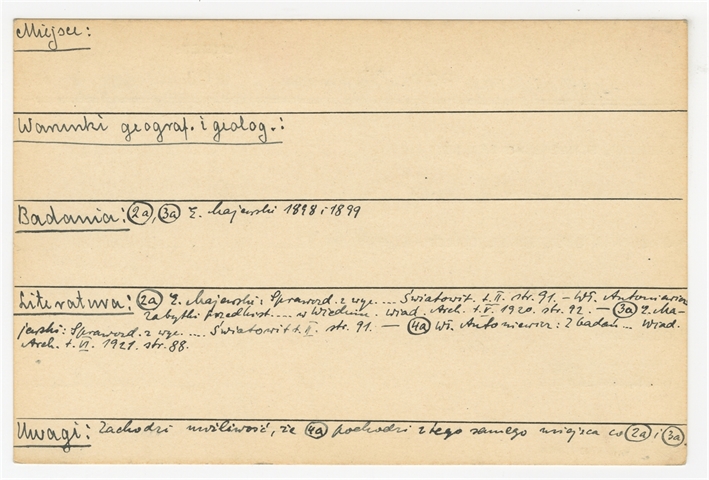 Miejsce:
Warunki geograf. i geolog.:
Badania: (2a), (3a) E. Majewski 1898 i 1899
Literatura: (2a) E. Majewski: Sprawozd. z wyc. ... Światowit t. II. str. 91. – Wł. Antoniewicz
Zabytki przedhist. ... w Wiedniu. Wiad. Arch. t. V. 1920. str. 92. — (3a) E. Ma-
jewski: Sprawozd. z wyc. ... Światowit t. II. str. 91. — (4a) Wł. Antoniewicz: Z badań ... Wiad.
Arch. t. VI. 1921. str. 88.
Uwagi: Zachodzi możliwość, że (4a) pochodzi z tego samego miejsca co (2a) i (3a).